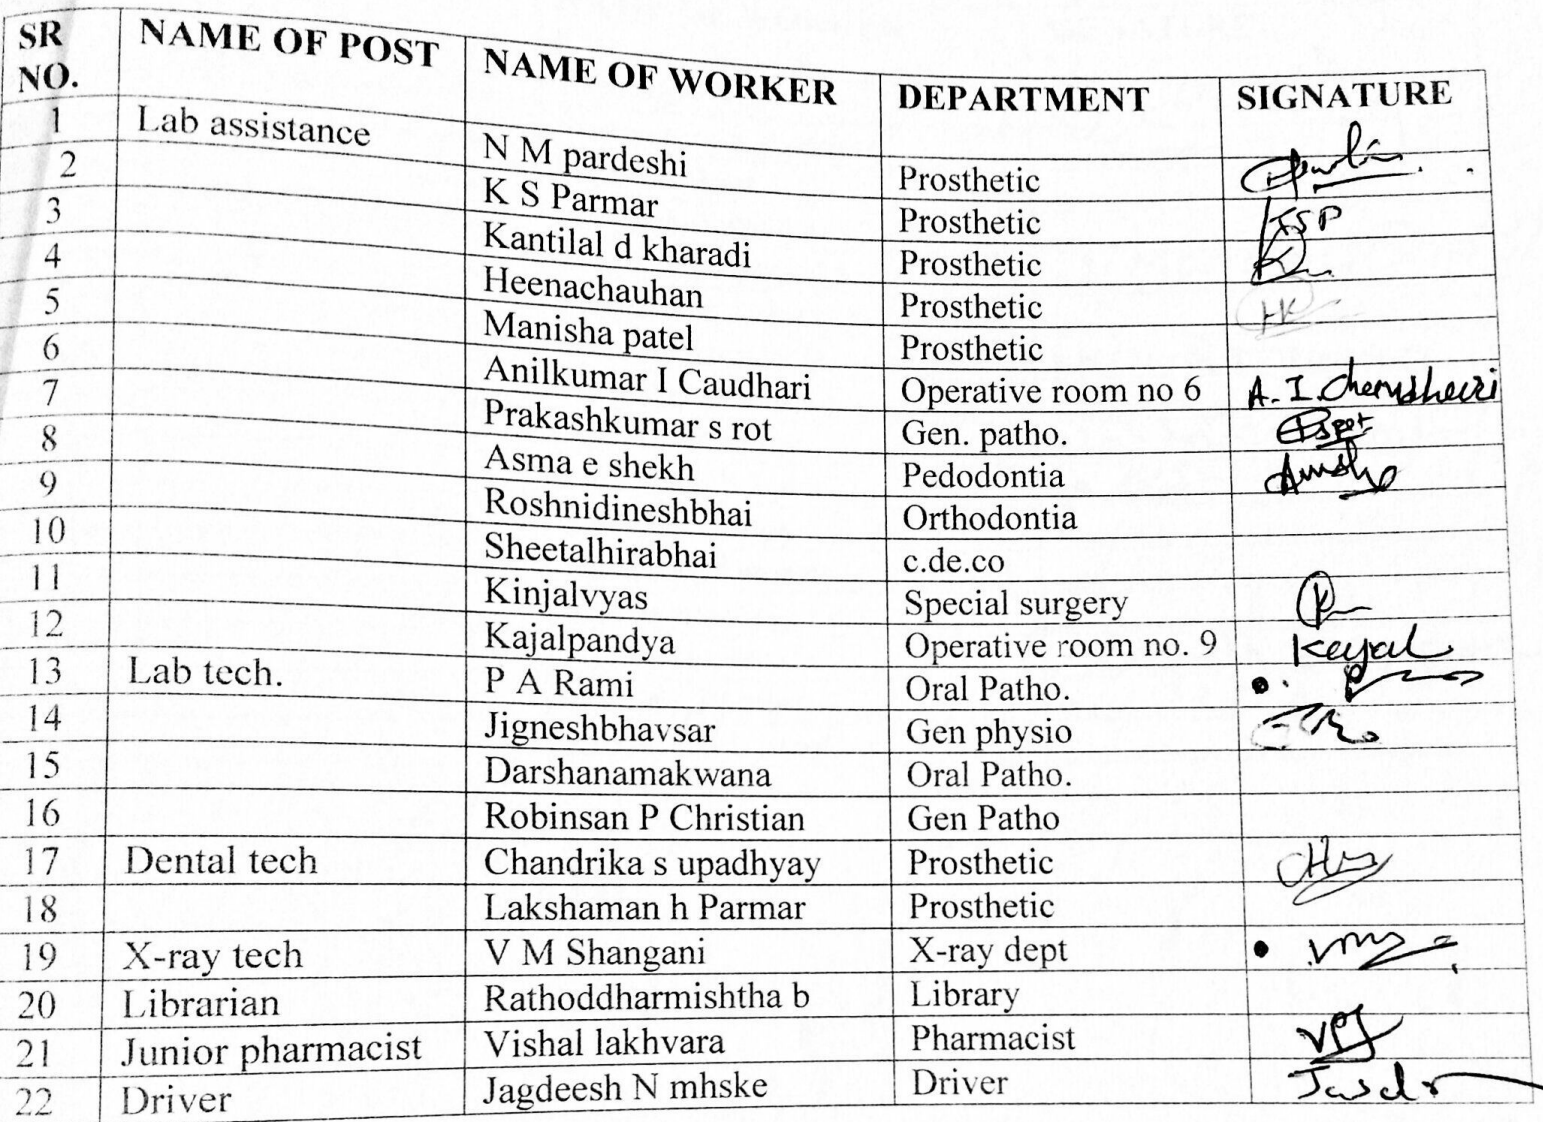 SR NO. NAME OF POST NAME OF WORKER DEPARTMENT SIGNATURE
1 Lab assistance N M pardeshi Prosthetic
2 K S Parmar Prosthetic KSP
3 Kantilal d kharadi Prosthetic
4 Heenachauhan Prosthetic HK
5 Manisha patel Prosthetic
6 Anilkumar I Caudhari Operative room no 6 A. I.
7 Prakashkumar s rot Gen. patho.
8 Asma e shekh Pedodontia
9 Roshnidineshbhai Orthodontia
10 Sheetalhirabhai c.de.co
11 Kinjalvyas Special surgery
12 Kajalpandya Operative room no. 9 Kajal
13 Lab tech. P A Rami Oral Patho.
14 Jigneshbhavsar Gen physio
15 Darshanamakwana Oral Patho.
16 Robinsan P Christian Gen Patho
17 Dental tech Chandrika s upadhyay Prosthetic
18 Lakshaman h Parmar Prosthetic
19 X-ray tech V M Shangani X-ray dept
20 Librarian Rathoddharmishtha b Library
21 Junior pharmacist Vishal lakhvara Pharmacist
22 Driver Jagdeesh N mhske Driver